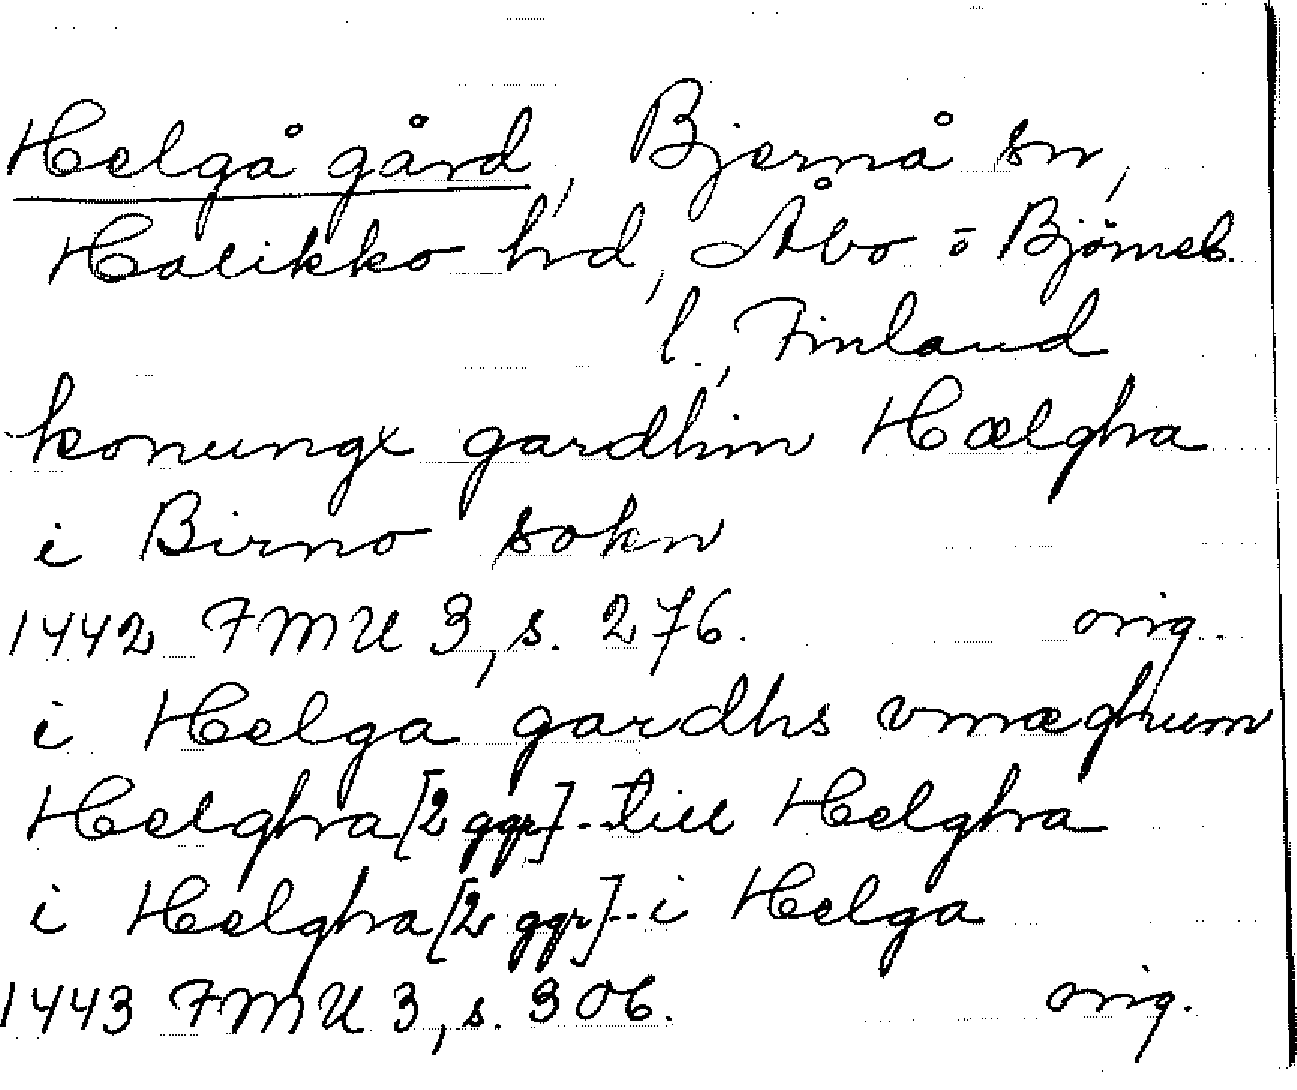 Helgå gård, Bjernå sn,
Halikko hd, Åbo o Björneb.
l., Finland
konungx gardhin Hælgha
i Birno sokn
1442 FMU 3, s. 276. orig.
i Helga gardhs vmæghum
Helgha [2 ggr] - till Helgha
i Helgha [2 ggr] - i Helga
1443 FMU 3, s. 306. orig.